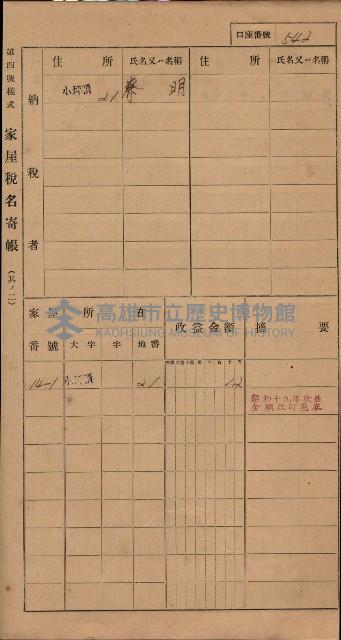 口座番號 542
第四號樣式
家屋稅名寄帳
(其ノ二)
納稅者
住所 氏名又ハ名稱 住所 氏名又ハ名稱
小坪頂 21 蔡明
高雄市立歷史博物館
KAOHSIUNG MUSEUM OF HISTORY
家屋番號 所在 大字 字 地番 收益金額 摘要
14-1 小坪頂 21 12
昭和十九年收益